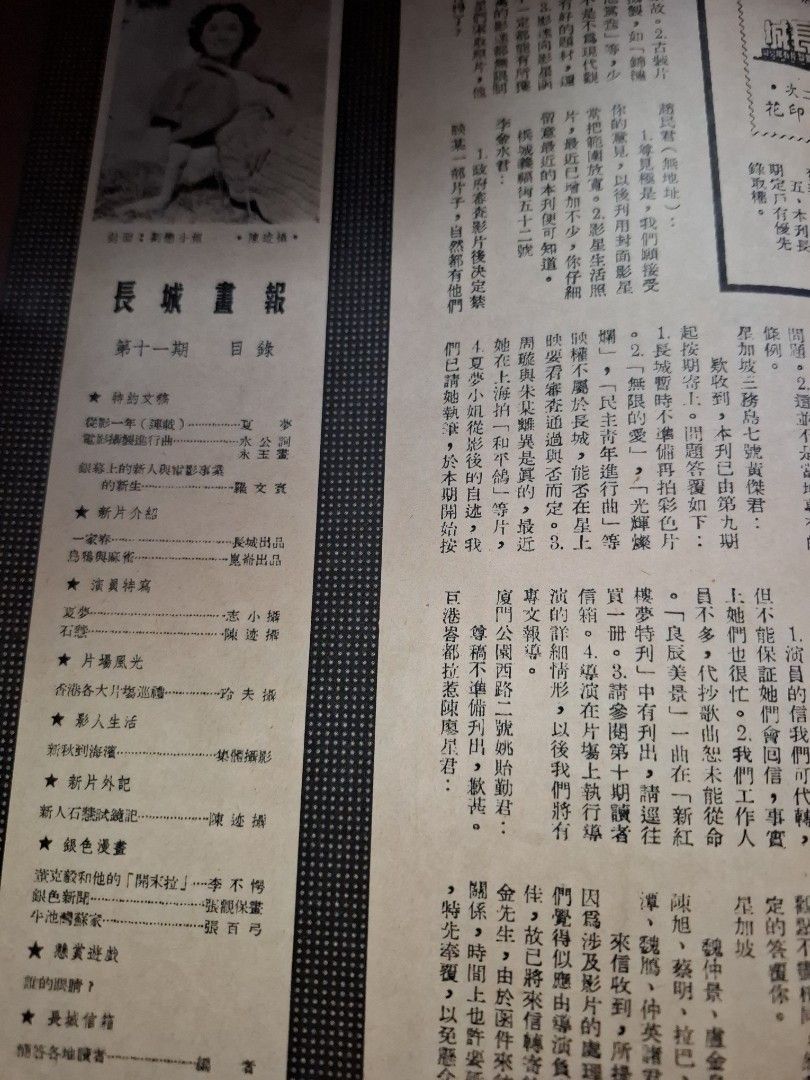 •陳迹攝•
長城畫報
第十一期 目錄
★ 特約文稿
從影一年(連載)…………夏 夢
電影攝製進行曲…………水公詞
永玉畫
銀幕上的新人與電影事業
的新生…………羅文賓
★ 新片介紹
一家春…………長城出品
烏鴉與麻雀…………崑崙出品
★ 演員特寫
夏夢…………志小攝
石慧…………陳迹攝
★ 片場風光
香港各大片場巡禮…………玲夫攝
★ 影人生活
新秋到海濱…………集體攝影
★ 新片外記
新人石慧試鏡記…………陳迹攝
★ 銀色漫畫
葉克毅和他的「開末拉」…李不愕
銀色新聞…………張觀保畫
牛池灣蘇家…………張百弓
★ 懸賞遊戲
誰的眼睛?
★ 長城信箱
簡答各地讀者…………編 者
城長
•次
花印
五、本刊長
期定戶有優先
錄取權。
故。2.古裝片
趙民君(無地址):
1.尊見極是,我們願接受
你的意見,以後刊用封面影星
常把範圍放寬。2.影星生活照
片,最近已增加不少,你仔細
留意最近的本刊便可知道。
檳城義福街五十二號
李金水君:
1.政府審查影片後决定禁
映某一部片子,自然都有他們
問題。2.這並不是當地
條例。
星加坡三務島七號黃傑君:
欵收到,本刊已由第九期
起按期寄上。問題答覆如下:
1.長城暫時不準備再拍彩色片
。2.「無限的愛」,「光輝燦
爛」,「民主青年進行曲」等
映權不屬於長城,能否在星上
映要看審查通過與否而定。3.
周璇與朱某離異是眞的,最近
她在上海拍「和平鴿」等片,
4.夏夢小姐從影後的自述,我
們已請她執筆,於本期開始按
1.演員的信我們可代轉,
但不能保証她們會回信,事實
上她們也很忙。2.我們工作人
員不多,代抄歌曲恕未能從命
。「良辰美景」一曲在「新紅
樓夢特刊」中有刊出,請逕往
買一冊。3.請參閱第十期讀者
信箱。4.導演在片場上執行導
演的詳細情形,以後我們將有
專文報導。
廈門公園西路二號姚貽勤君:
尊稿不準備刊出,歉甚。
巨港峇都拉惹陳廖星君:
定的答覆你。
星加坡
魏仲景、盧金
陳旭、蔡明、拉巴
潭、魏鵬、仲英諸君
來信收到,所提
因爲涉及影片的處理
們覺得似應由導演負
佳,故已將來信轉寄
金先生,由於函件來往
關係,時間上也許要
,特先奉覆,以免懸念